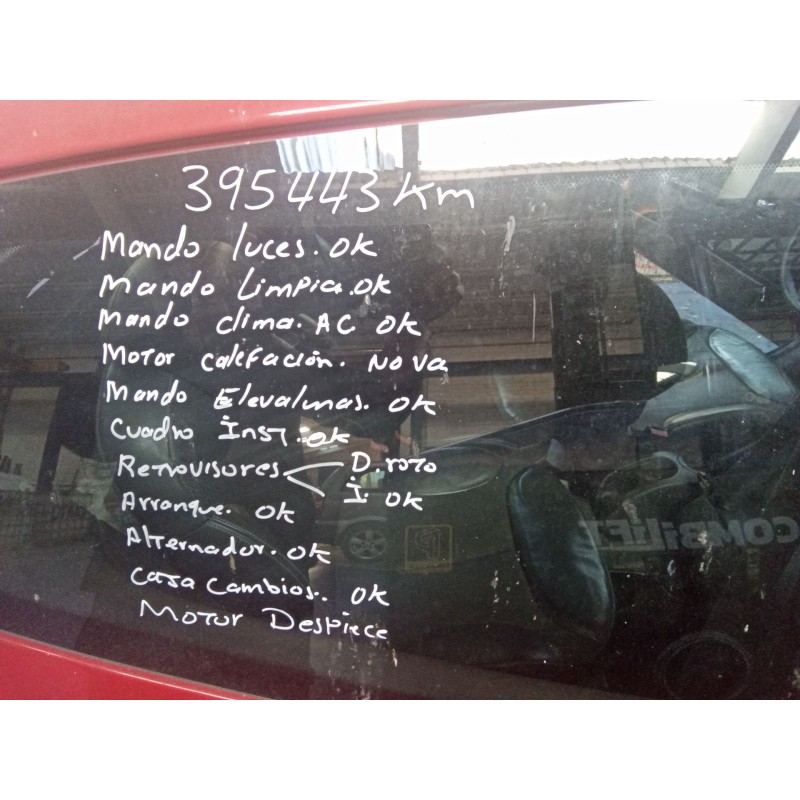 395443 Km
Mando luces. ok
Mando Limpia. ok
Mando clima. AC ok
Motor calefación. No va
Mando Elevalunas. ok
Cuadro Inst. ok
Retrovisores D. roto
I. ok
Arranque. ok
Alternador. ok
Caja Cambios. ok
Motor Despiece
COMBiLiFT